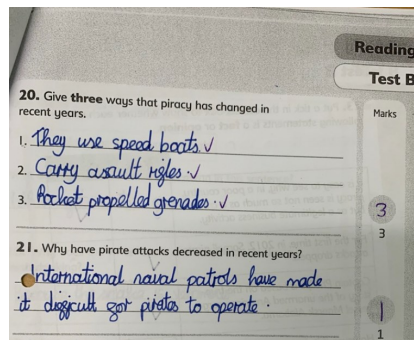 Reading
Test B
20. Give three ways that piracy has changed in
recent years.
Marks
1. They use speed boats. ✓
2. Carry assault rifles. ✓
3. Rocket propelled grenades. ✓
3
3
21. Why have pirate attacks decreased in recent years?
International naval patrols have made
it difficult for pirates to operate.
1
1